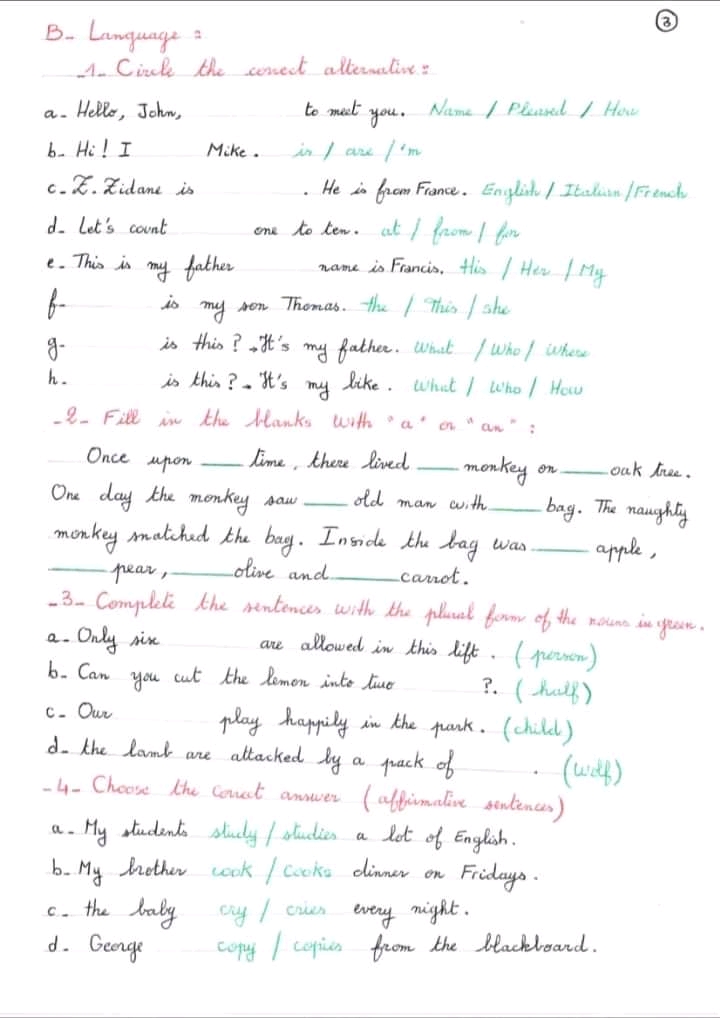 3
B- Language :
-1- Circle the correct alternative :
a- Hello, John, to meet you. Name / Pleased / How
b- Hi! I Mike. is / are / 'm
c- Z. Zidane is . He is from France. English / Italian / French
d- Let's count one to ten. at / from / for
e- This is my father name is Francis. His / Her / My
f- is my son Thomas. the / This / she
g- is this ? . It's my father. What / Who / where
h. is this ? . It's my bike. What / Who / How
-2- Fill in the blanks with "a" or "an" :
Once upon ___ time, there lived ___ monkey on ___ oak tree.
One day the monkey saw ___ old man with ___ bag. The naughty
monkey snatched the bag. Inside the bag was ___ apple,
___ pear, ___ olive and ___ carrot.
-3- Complete the sentences with the plural form of the nouns in green.
a- Only six are allowed in this lift. (person)
b- Can you cut the lemon into two ?. (half)
c- Our play happily in the park. (child)
d- the lamb are attacked by a pack of . (wolf)
-4- Choose the correct answer (affirmative sentences)
a- My students study / studies a lot of English.
b- My brother cook / cooks dinner on Fridays.
c- the baby cry / cries every night.
d- George copy / copies from the blackboard.